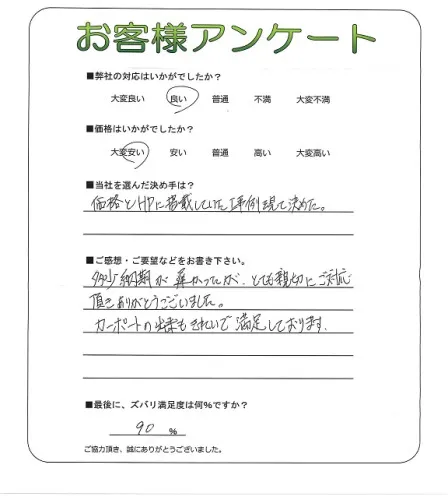 お客様アンケート
■弊社の対応はいかがでしたか？
大変良い 良い 普通 不満 大変不満
■価格はいかがでしたか？
大変安い 安い 普通 高い 大変高い
■当社を選んだ決め手は？
価格とHPに搭載していた事例見て決めた。
■ご感想・ご要望などをお書き下さい。
多少納期が かかったが、とても親切にご対応
頂きありがとうございました。
カーポートの出来もきれいで満足しております。
■最後に、ズバリ満足度は何%ですか？
90 %
ご協力頂き、誠にありがとうございました。